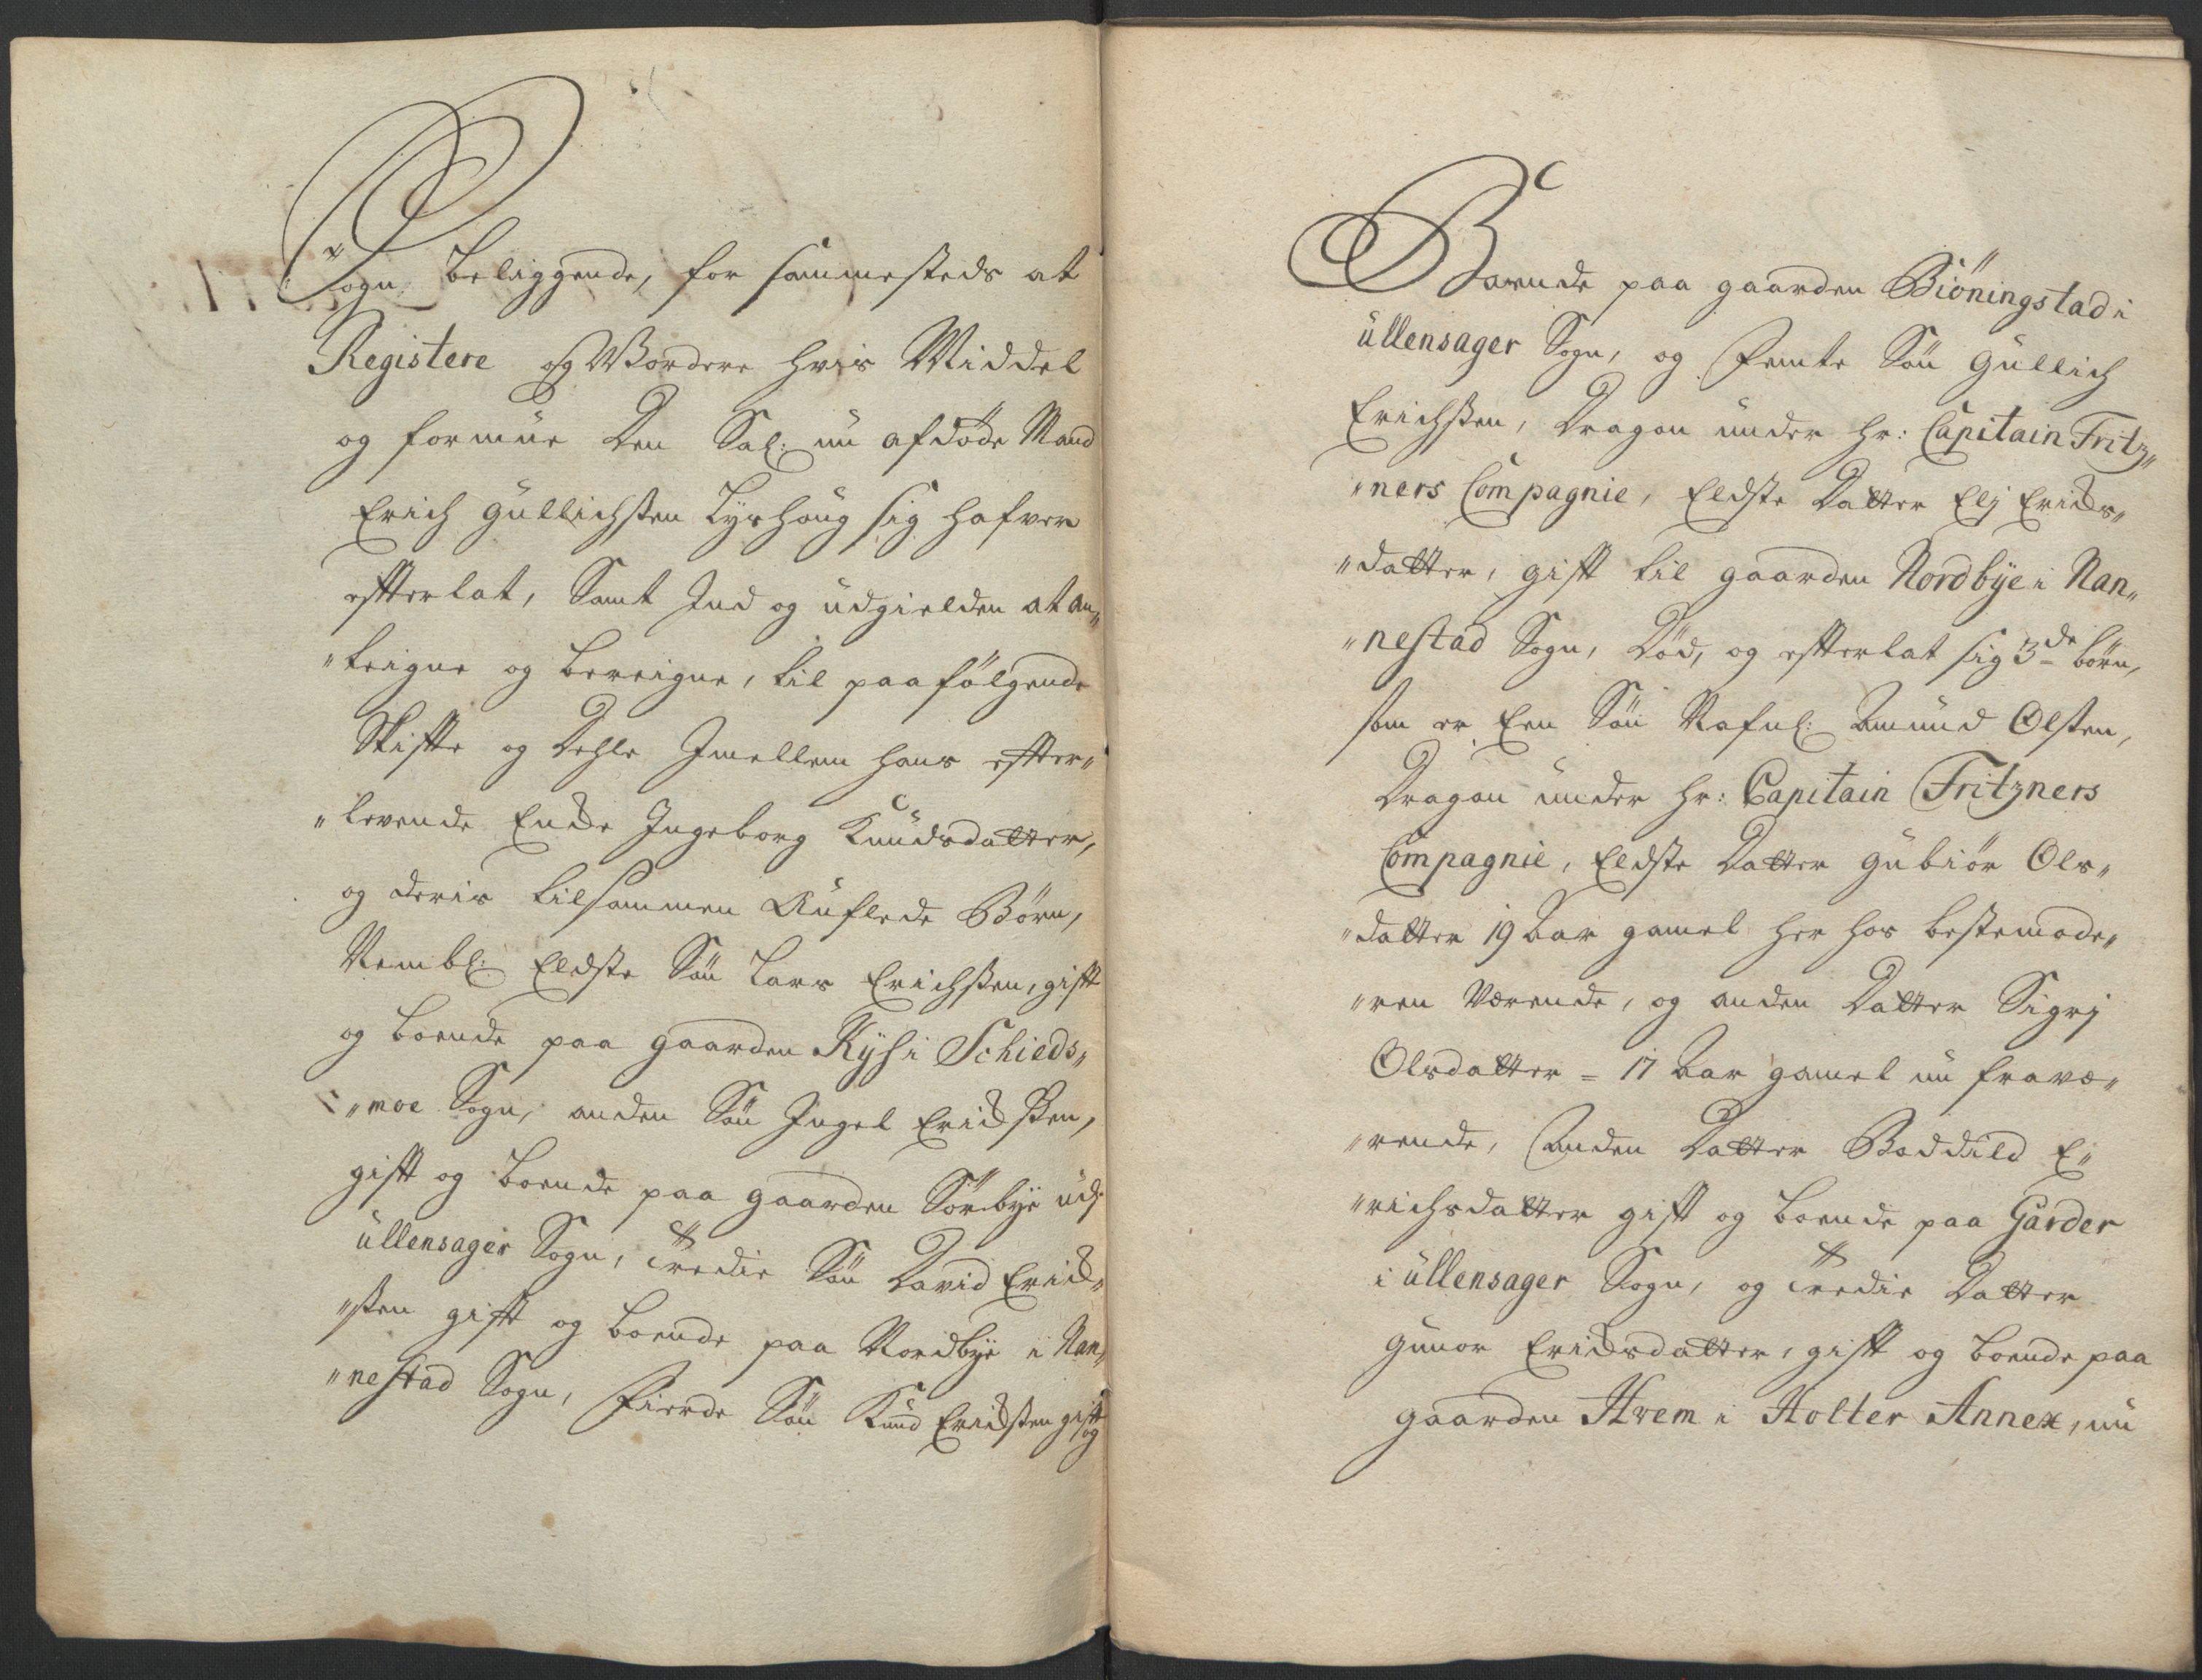 Sogn beliggende, for sammesteds at
Registere og Wordere hvis Middel
og formüe Den Sal: nu afdøde Mand
Erich Gullichsten Lyshoug sig hafver
effterlat, Samt Ind og udgielden at an„
„teigne og bereigne, til paafølgende
Skiffte og Dehle Imellem hans effter„
„levende Encke Ingeborg Knudsdatter,
og deris tilsammen Auflede Børn,
Nembl: Eldste Søn Lars Erichsten, gifft
og boende paa gaarden Ryh i Schieds„
„moe Sogn, anden Søn Ingel Ericksten,
gifft og boende paa gaarden Sørbye udj
üllensager Sogn, Tredie Søn David Erick„
„sten gifft og boende paa Nordbye i Nan„
„nestad Sogn, Fierde Søn Knud Ericksten gifft
og
Boende paa gaarden Biöningstad i
üllensager Sogn, og Femte Søn Gullich
Erichsten, Dragon under Hr: Capitain Fritz„
„ners Compagnie, Eldste Datter Elj Ericks„
„datter, gifft til gaarden Nordbÿe i Nan„
„nestad Sogn, Død, og effterlat sig 3de børn,
som er Een Søn Nafnl: Amund Olsten,
Dragon under Hr: Capitain Fritzners
Compagnie, Eldste Datter Gubiør Ols„
„datter 19 Aar gamel her hos bestemode„
„ren Værende, og anden Datter Sigrj
Olsdatter = 17 Aar gamel nu fravæ„
„rende, Anden Datter Boddild E„
„richsdatter gifft og boende paa Garder
i üllensager Sogn, og Tredie Datter
Gunor Ericksdatter, gifft og boende paa
gaarden Hvem i Holter Annex, nu